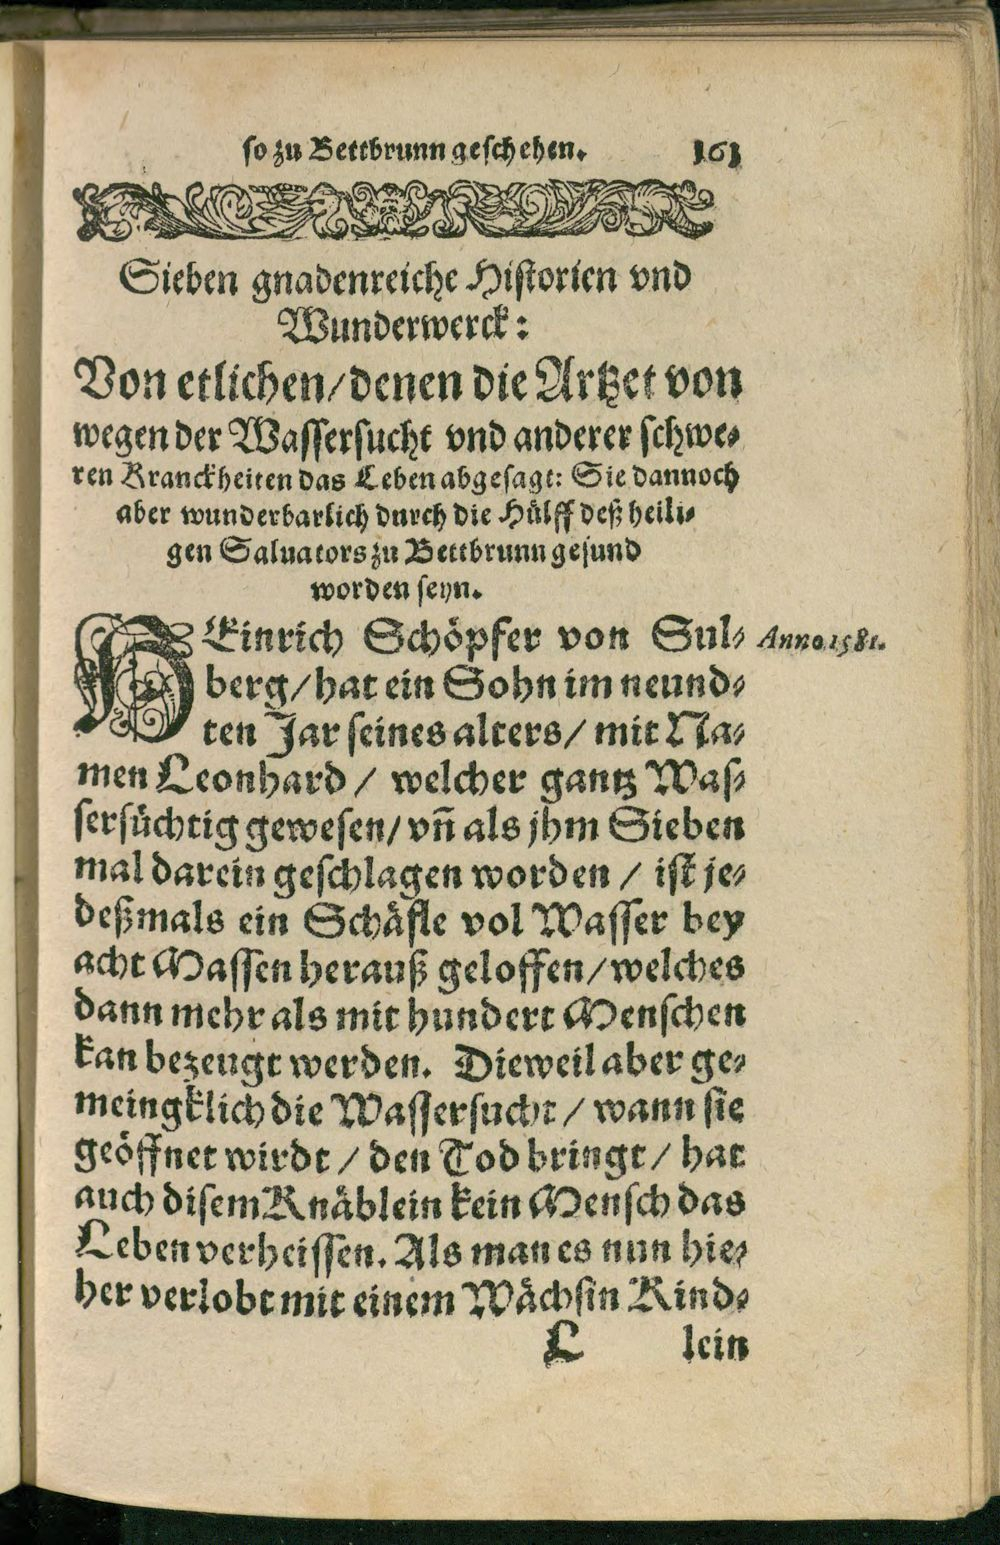 so zu Bettbrunn geschehen. 161
Sieben gnadenreiche Historien vnd
Wunderwerck:
Von etlichen/denen die Artzet von
wegen der Wassersucht vnd anderer schwe⸗
ren Kranckheiten das Leben abgesagt: Sie dannoch
aber wunderbarlich durch die Hülff deß heili⸗
gen Saluators zu Bettbrunn gesund
worden seyn.
HEinrich Schöpfer von Sul⸗ Anno 1581.
berg/hat ein Sohn im neund⸗
ten Jar seines alters/ mit Na⸗
men Leonhard / welcher gantz Was⸗
sersüchtig gewesen/ vñ als jhm Sieben
mal darein geschlagen worden / ist je⸗
deßmals ein Schäfle vol Wasser bey
acht Massen herauß geloffen/welches
dann mehr als mit hundert Menschen
kan bezeugt werden. Dieweil aber ge⸗
meingklich die Wassersucht / wann sie
geöffnet wirdt / den Tod bringt / hat
auch disem Knäblein kein Mensch das
Leben verheissen. Als man es nun hie⸗
her verlobt mit einem Wächsin Kind⸗
L lein